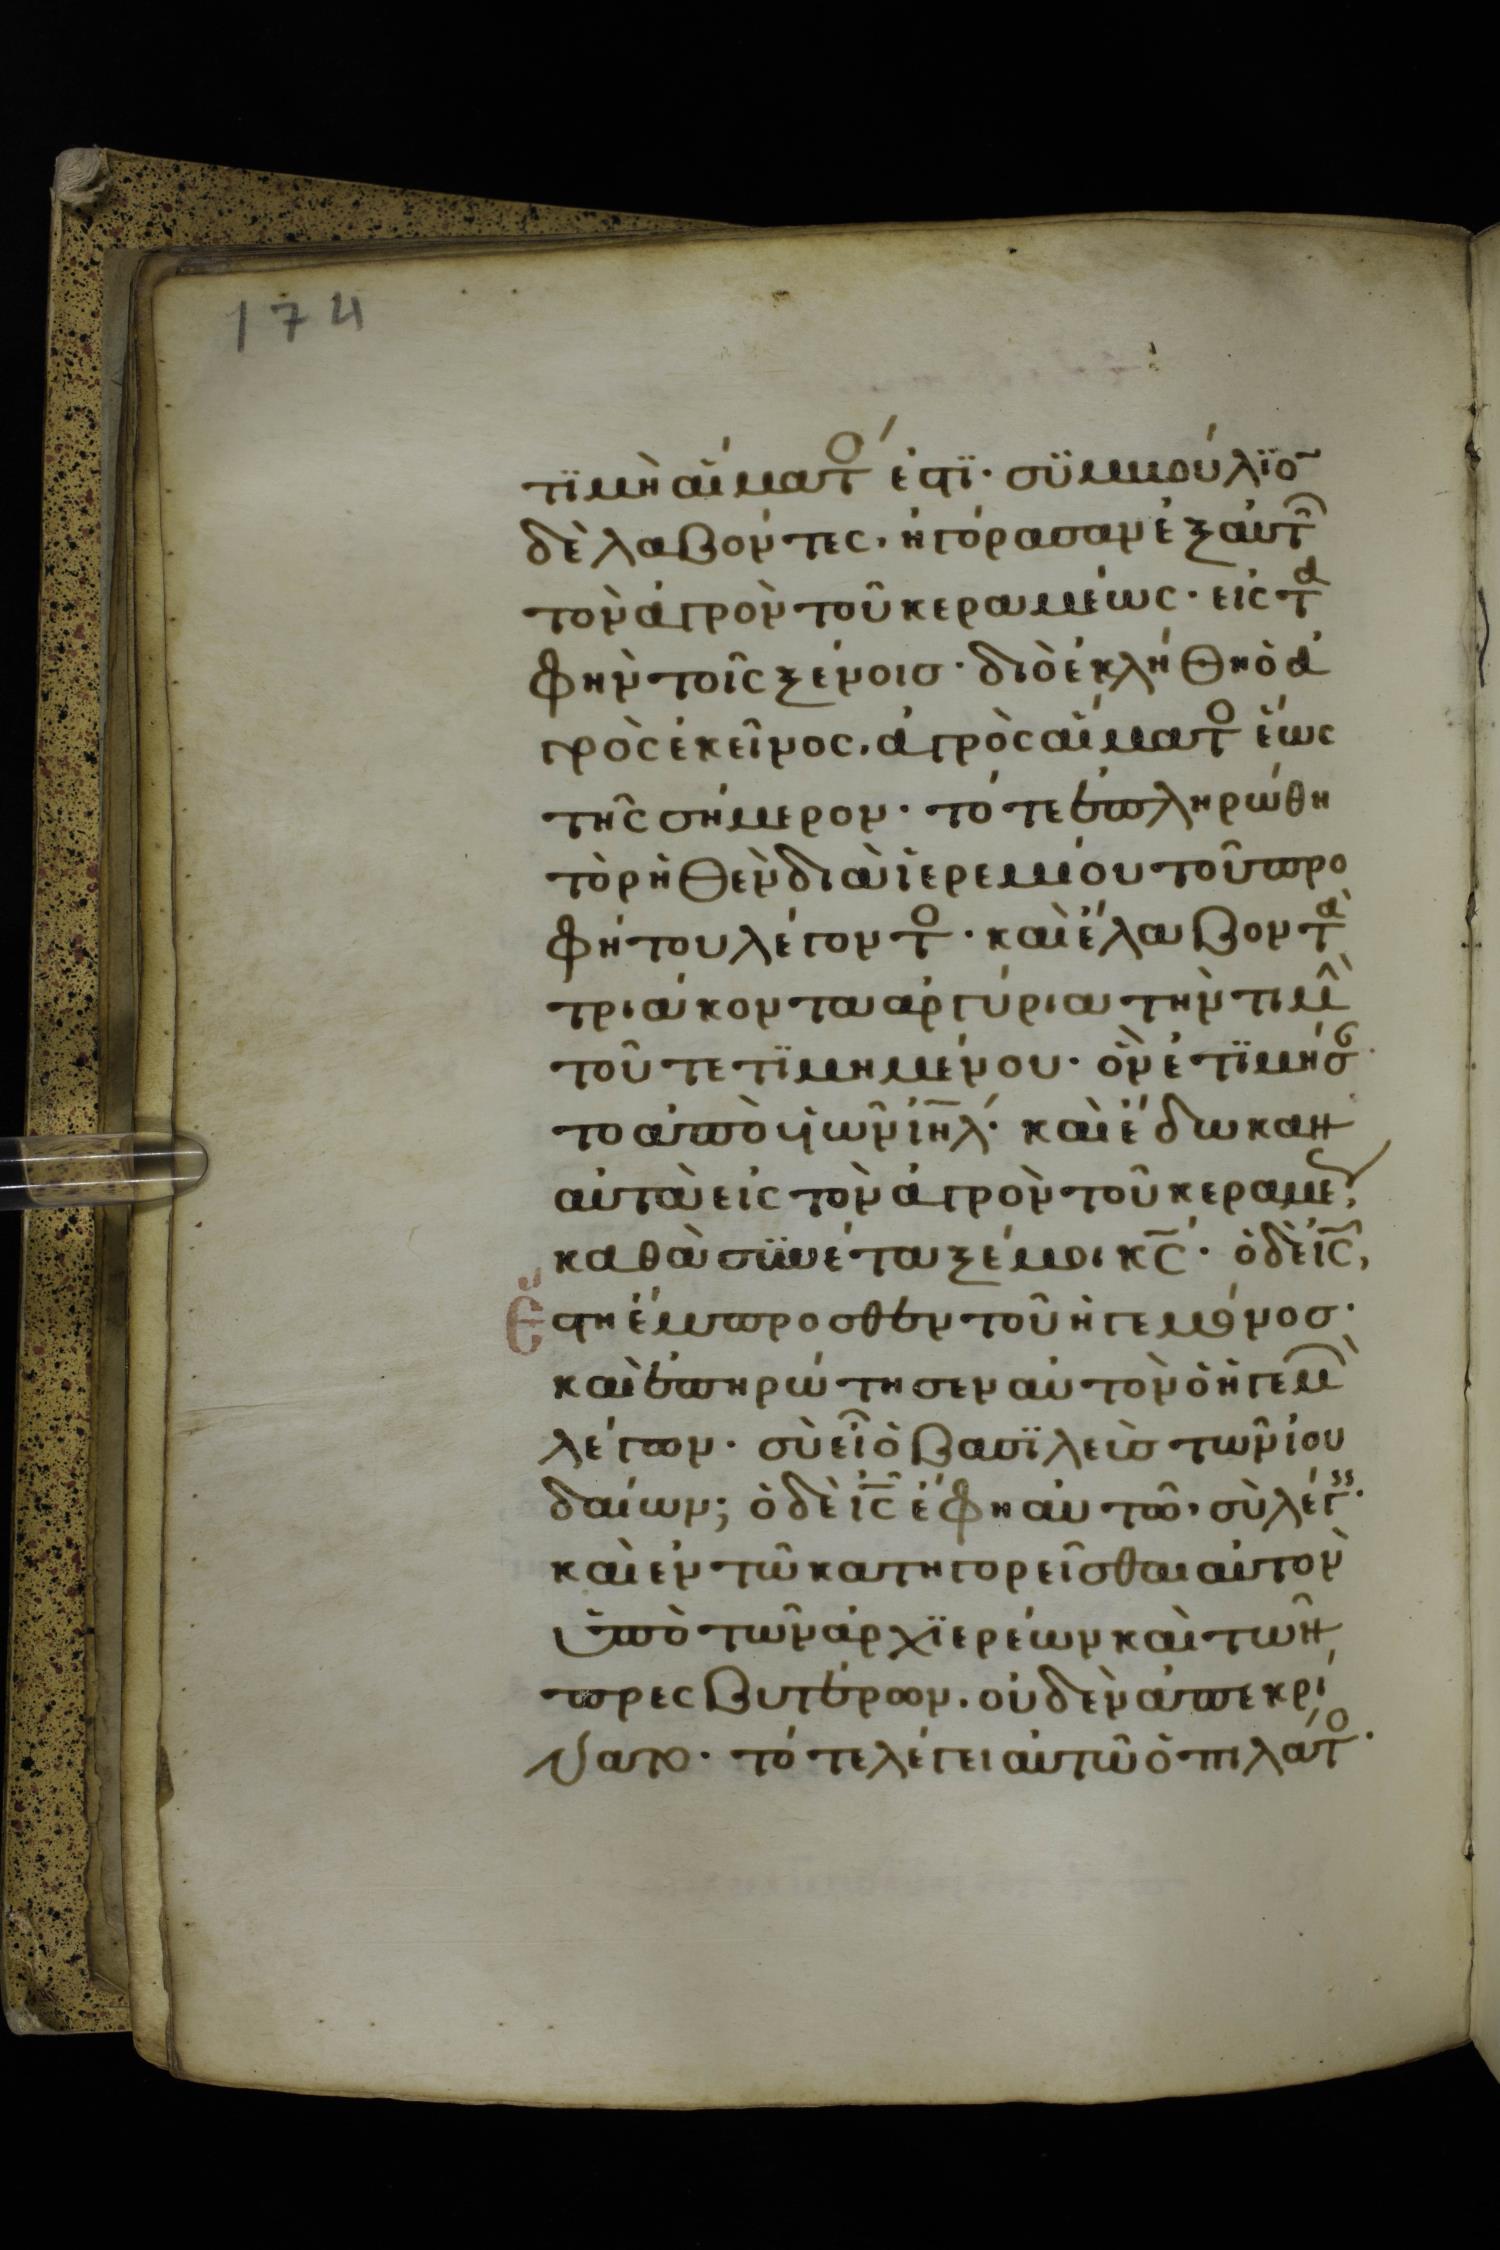 174
τϊμὴ αἵματ͑ο ἐστϊ· σϋμβούλϊο̃
δὲ λαβόντες, ἠγόρασαν ἐξ αὐτ͂
τὸν ἀγρὸν τοῦ κεραμέως· εἰς τα
φὴν τοῖς ξένοισ· διὸ ἐκλήθη ὁ ἀ
γρὸς ἐκεῖνος, ἀγρὸς αἵματο ἕως
τῆς σήμερον· τότε ἐπληρώθη
τὸ ῥηθὲν διὰ ἱερεμίου τοῦ προ
φήτου λέγοντο· καὶ ἔλαβον τὰ
τριάκοντα ἀργύρια τὴν τιμ̂̀
τοῦ τετϊμημένου· ὃν ἐτϊμήσ
το ἀπὸ ὑιῶν ιη̅λ· καὶ ἔδωκαν
αὐτὰ εἰς τὸν ἀγρὸν τοῦ κεραμέ,
καθὰ σϋνέταξέ μοι κ̅ς· ὁ δὲ ι̅ς,
Ἔστη ἔμπροσθεν τοῦ ἡγεμόνοσ·
καὶ ἐπηρώτησεν αὐτὸν ὁ ἡγεμ̂̀
λέγων· σὺ εἶ ὁ βασϊλεὺσ τῶν ἰου
δαίων; ὁ δὲ ι̅ς ἔφη αὐτῶ, σὺ λέγ·
καὶ ἐν τῶ κατηγορεῖσθαι αὐτὸν
ὑπὸ τῶν ἀρχϊερέων καὶ τῶν
πρεσβυτέρων, οὐδὲν ἀπεκρί
νατο· τότε λέγει αὐτῶ ὁ πιλάτο·